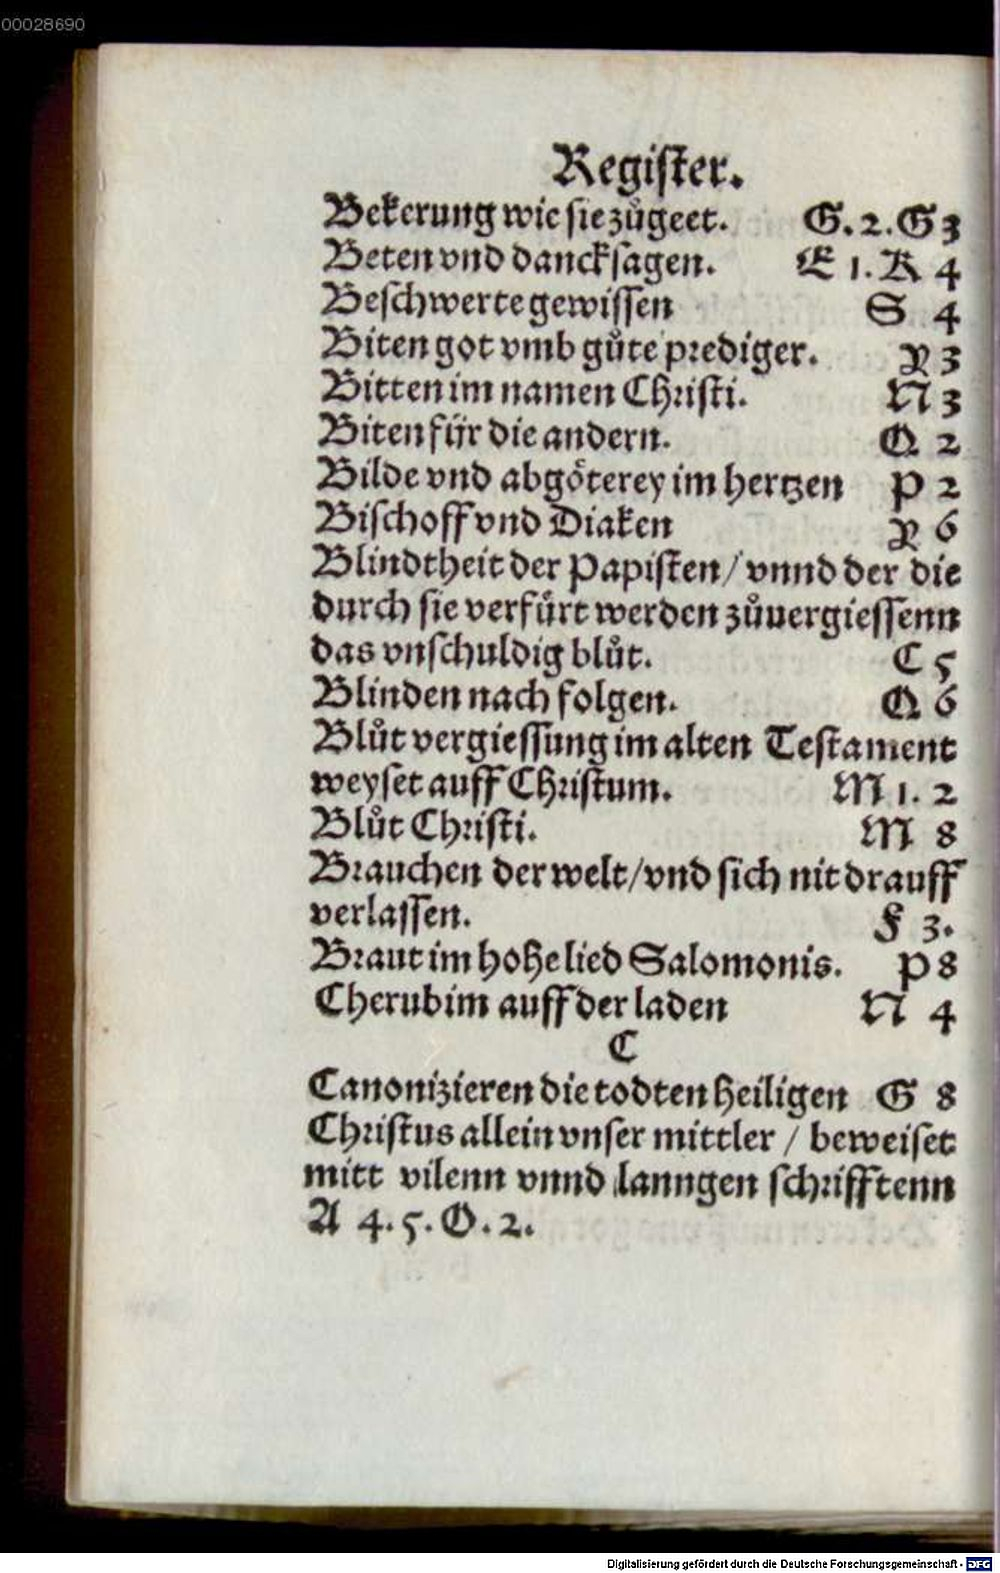 00028690
Register.
Bekerung wie sie zůgeet. G. 2. G 3
Beten vnd dancksagen. E 1. K 4
Beschwerte gewissen S 4
Biten got vmb gůte prediger. R 3
Bitten im namen Christi. N 3
Biten für die andern. Q 2
Bilde vnd abgöterey im hertzen P 2
Bischoff vnd Diaken R 6
Blindtheit der Papisten / vnnd der die
durch sie verfürt werden zůuergiessenn
das vnschuldig blůt. C 5
Blinden nach folgen. Q 6
Blůt vergiessung im alten Testament
weyset auff Christum. M 1. 2
Blůt Christi. M 8
Brauchen der welt / vnd sich nit drauff
verlassen. F 3.
Braut im hohe lied Salomonis. P 8
Cherubim auff der laden N 4
C
Canonizieren die todten heiligen G 8
Christus allein vnser mittler / beweiset
mitt vilenn vnnd lanngen schrifftenn
A 4. 5. O. 2.
Digitalisierung gefördert durch die Deutsche Forschungsgemeinschaft - DFG